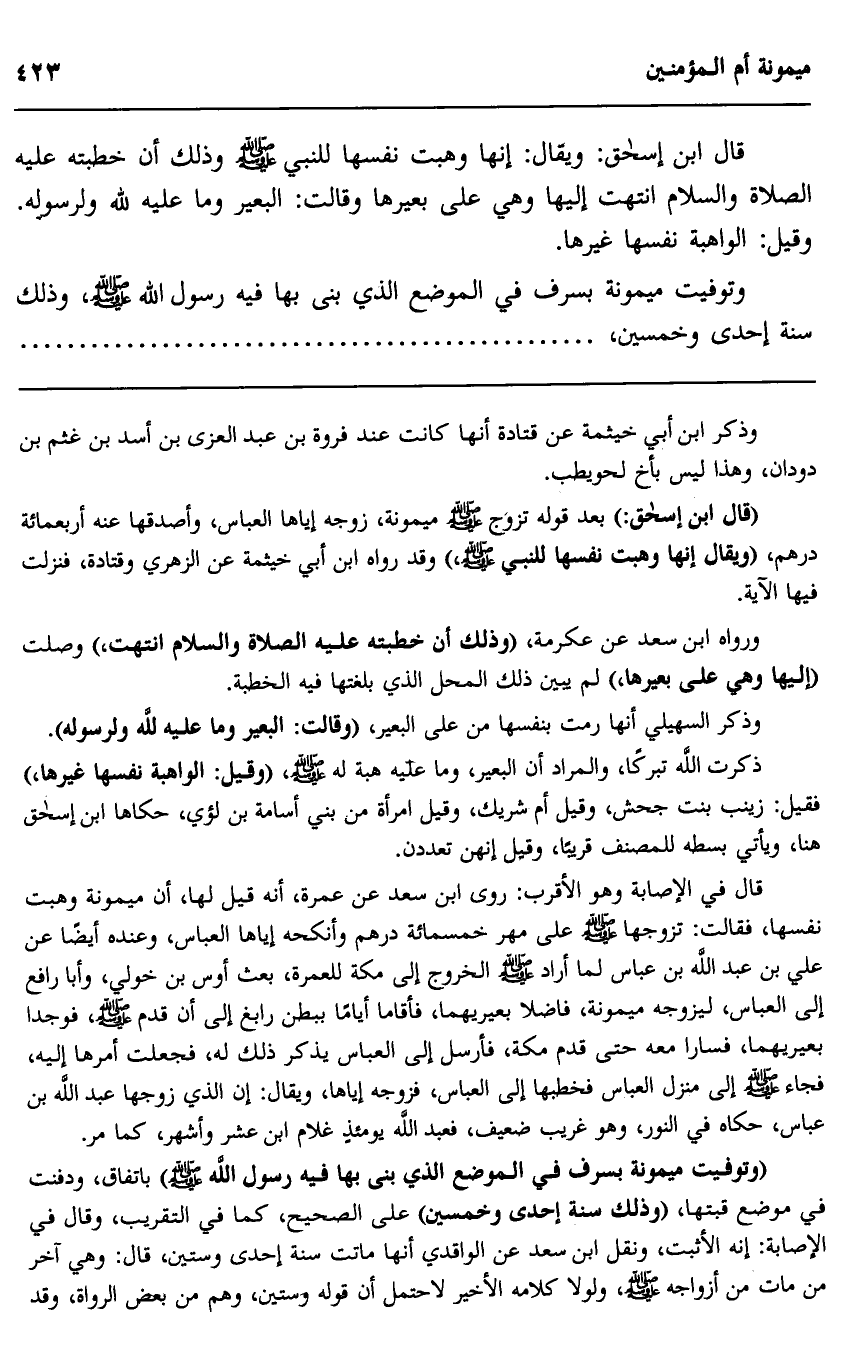 ميمونة أم المؤمنين ٤٢٣
قال ابن إسحٰق: ويقال: إنها وهبت نفسها للنبي ﷺ وذلك أن خطبته عليه
الصلاة والسلام انتهت إليها وهي على بعيرها وقالت: البعير وما عليه لله ولرسوله.
وقيل: الواهبة نفسها غيرها.
وتوفيت ميمونة بسرف في الموضع الذي بنى بها فيه رسول الله ﷺ، وذلك
سنة إحدى وخمسين، ................................................
وذكر ابن أبي خيثمة عن قتادة أنها كانت عند فروة بن عبد العزى بن أسد بن غثم بن
دودان، وهذا ليس بأخ لحويطب.
(قال ابن إسحٰق:) بعد قوله تزوج ﷺ ميمونة، زوجه إياها العباس، وأصدقها عنه أربعمائة
درهم، (ويقال إنها وهبت نفسها للنبي ﷺ،) وقد رواه ابن أبي خيثمة عن الزهري وقتادة، فنزلت
فيها الآية.
ورواه ابن سعد عن عكرمة، (وذلك أن خطبته عليه الصلاة والسلام انتهت،) وصلت
(إليها وهي على بعيرها،) لم يبين ذلك المحل الذي بلغتها فيه الخطبة.
وذكر السهيلي أنها رمت بنفسها من على البعير، (وقالت: البعير وما عليه للَّه ولرسوله).
ذكرت اللَّه تبركًا، والمراد أن البعير، وما عليه هبة له ﷺ، (وقيل: الواهبة نفسها غيرها،)
فقيل: زينب بنت جحش، وقيل أم شريك، وقيل امرأة من بني أسامة بن لؤي، حكاها ابن إسحٰق
هنا، ويأتي بسطه للمصنف قريبًا، وقيل إنهن تعددن.
قال في الإصابة وهو الأقرب: روى ابن سعد عن عمرة، أنه قيل لها، أن ميمونة وهبت
نفسها، فقالت: تزوجها ﷺ على مهر خمسمائة درهم وأنكحه إياها العباس، وعنده أيضًا عن
علي بن عبد اللَّه بن عباس لما أراد ﷺ الخروج إلى مكة للعمرة، بعث أوس بن خولي، وأبا رافع
إلى العباس، ليزوجه ميمونة، فاضلا بعيريهما، فأقاما أيامًا ببطن رابغ إلى أن قدم ﷺ، فوجدا
بعيريهما، فسارا معه حتى قدم مكة، فأرسل إلى العباس يذكر ذلك له، فجعلت أمرها إليه،
فجاء ﷺ إلى منزل العباس فخطبها إلى العباس، فزوجه إياها، ويقال: إن الذي زوجها عبد اللَّه بن
عباس، حكاه في النور، وهو غريب ضعيف، فعبد اللَّه يومئذٍ غلام ابن عشر وأشهر، كما مر.
(وتوفيت ميمونة بسرف في الموضع الذي بنى بها فيه رسول اللَّه ﷺ) باتفاق، ودفنت
في موضع قبتها، (وذلك سنة إحدى وخمسين) على الصحيح، كما في التقريب، وقال في
الإصابة: إنه الأثبت، ونقل ابن سعد عن الواقدي أنها ماتت سنة إحدى وستين، قال: وهي آخر
من مات من أزواجه ﷺ، ولولا كلامه الأخير لاحتمل أن قوله وستين، وهم من بعض الرواة، وقد